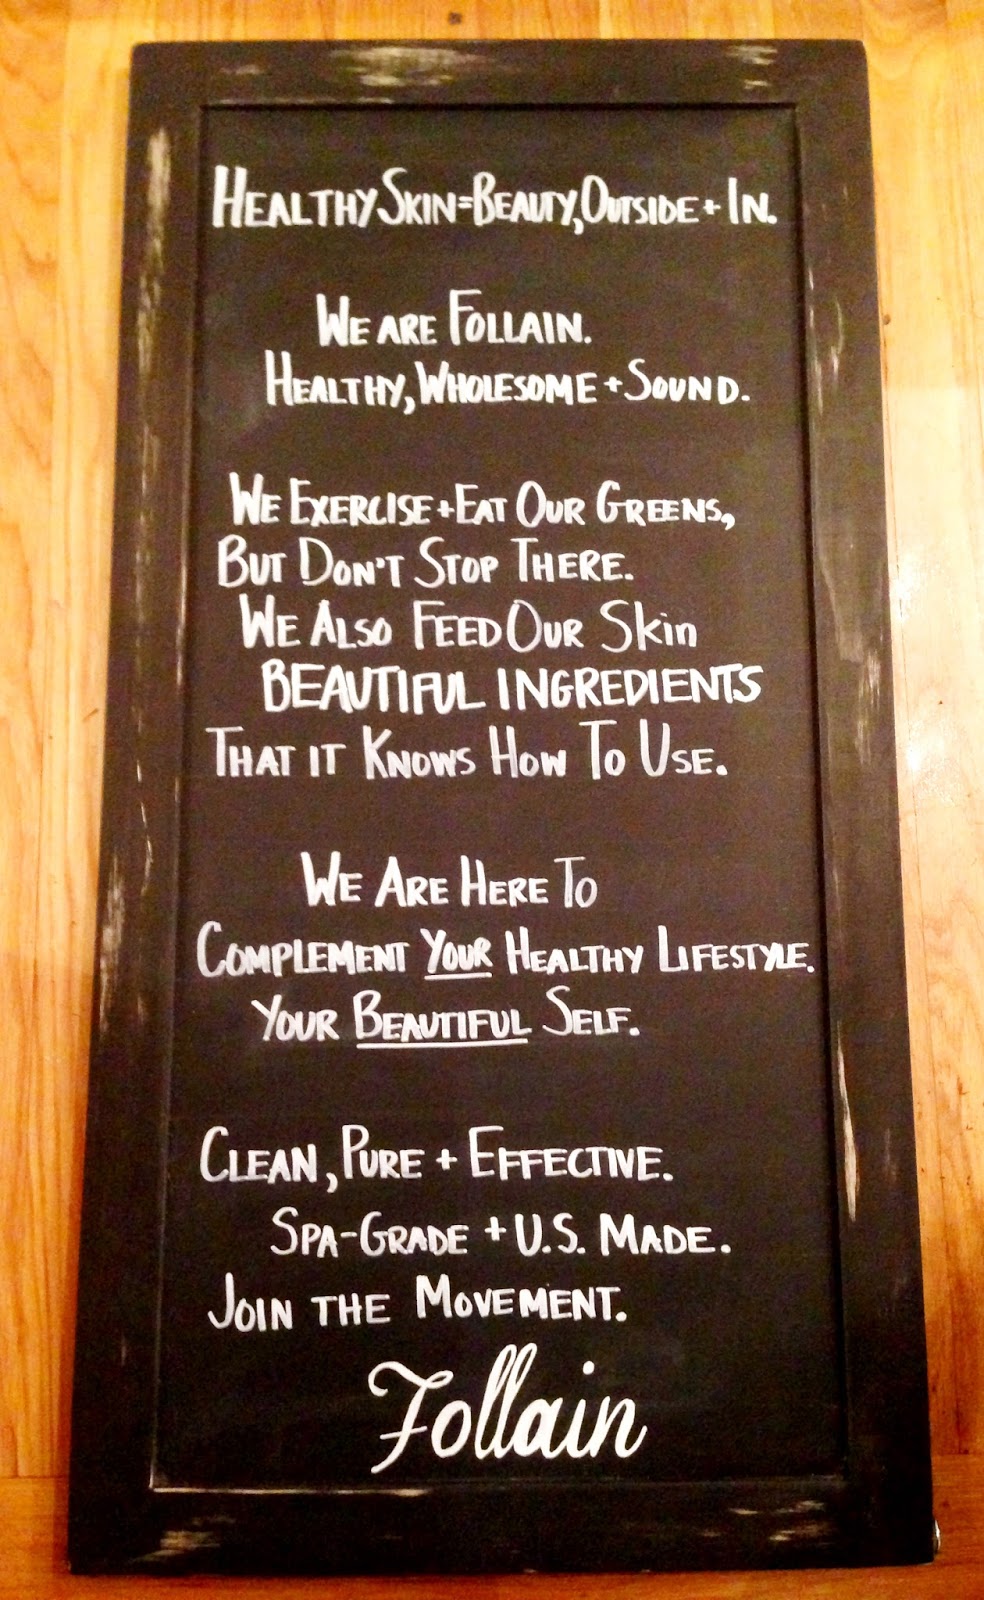 HEALTHY SKIN=BEAUTY, OUTSIDE + IN.
WE ARE FOLLAIN.
HEALTHY, WHOLESOME + SOUND.
WE EXERCISE + EAT OUR GREENS,
BUT DON'T STOP THERE.
WE ALSO FEED OUR Skin
BEAUTIFUL INGREDIENTS
THAT IT KNOWS HOW TO USE.
WE ARE HERE TO
COMPLEMENT YOUR HEALTHY LIFESTYLE.
YOUR BEAUTIFUL SELF.
CLEAN, PURE + EFFECTIVE.
SPA-GRADE + U.S. MADE.
JOIN THE MOVEMENT.
Follain